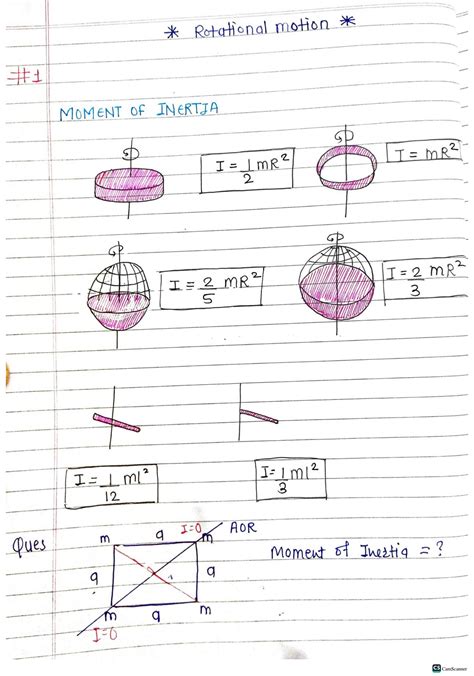 * Rotational motion *
#1
MOMENT OF INERTIA
I = 1/2 mR²
I = mR²
I = 2/5 mR²
I = 2/3 mR²
I = 1/12 ml²
I = 1/3 ml²
Ques
m a I=0 m AOR
Moment of Inertia = ?
a a
m a m
I=0
CS CamScanner